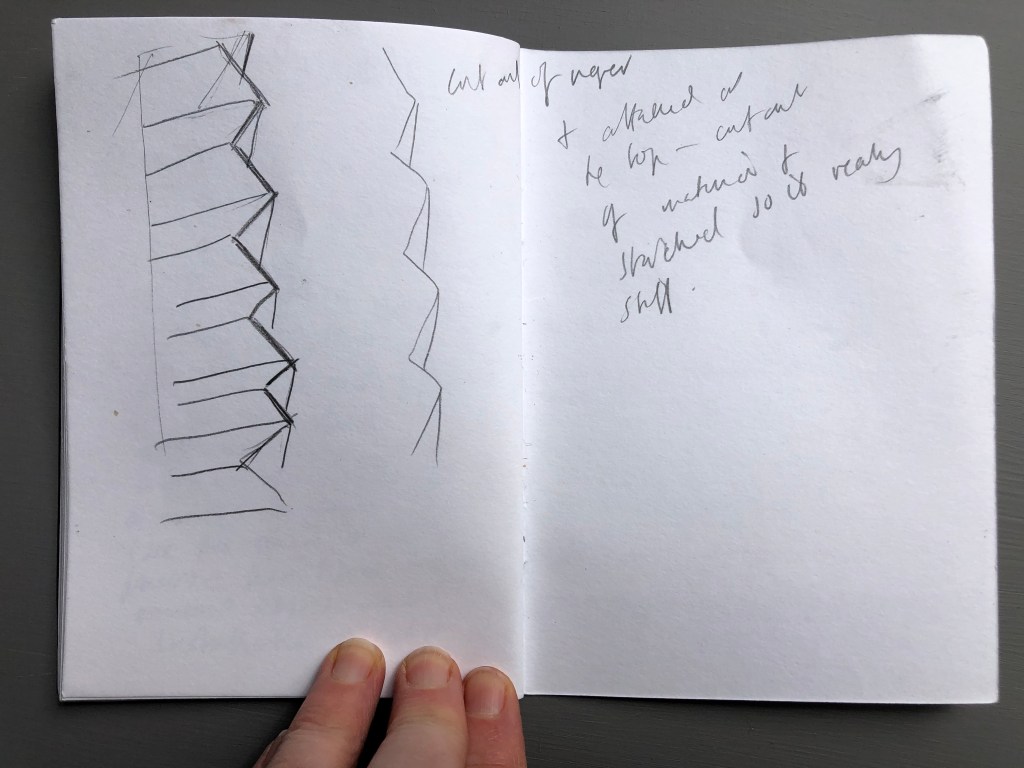 cut out of paper
+ attached at
the top – cut out
of material +
starched so it really
stiff.